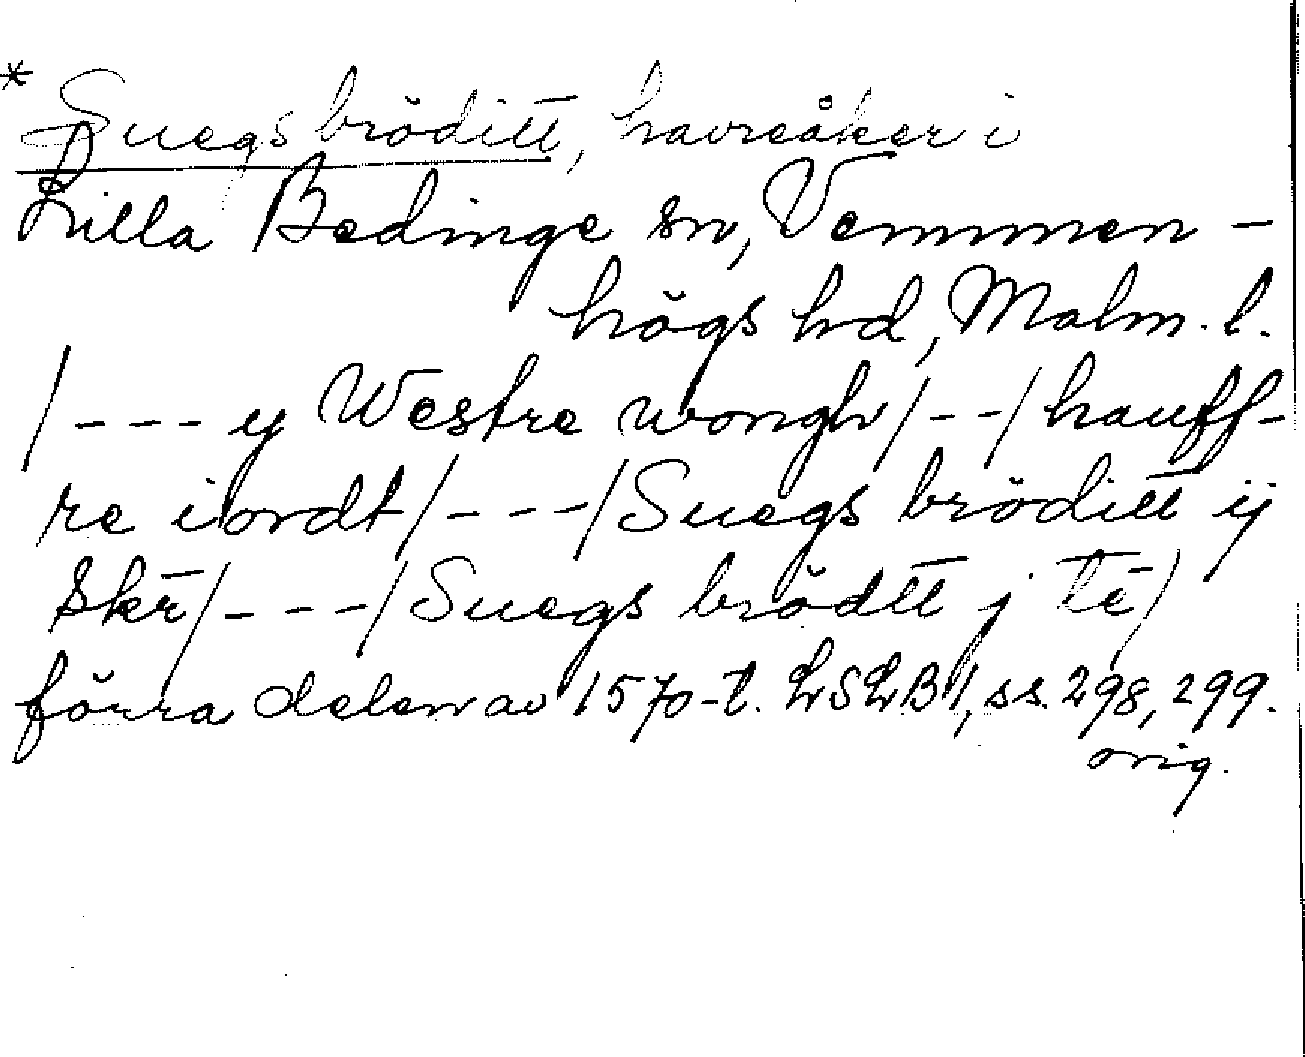 * Suegs bröditt, havreåker i
Lilla Bedinge sn, Vemmen-
högs hd, Malm. l.
/--- y Westre wongh/--/hauff-
re iordt/---/Suegs bröditt ij
skr̄/---/Suegs brödtt j tē/
förra delen av 1570-t. LSLB1, ss. 298, 299.
orig.